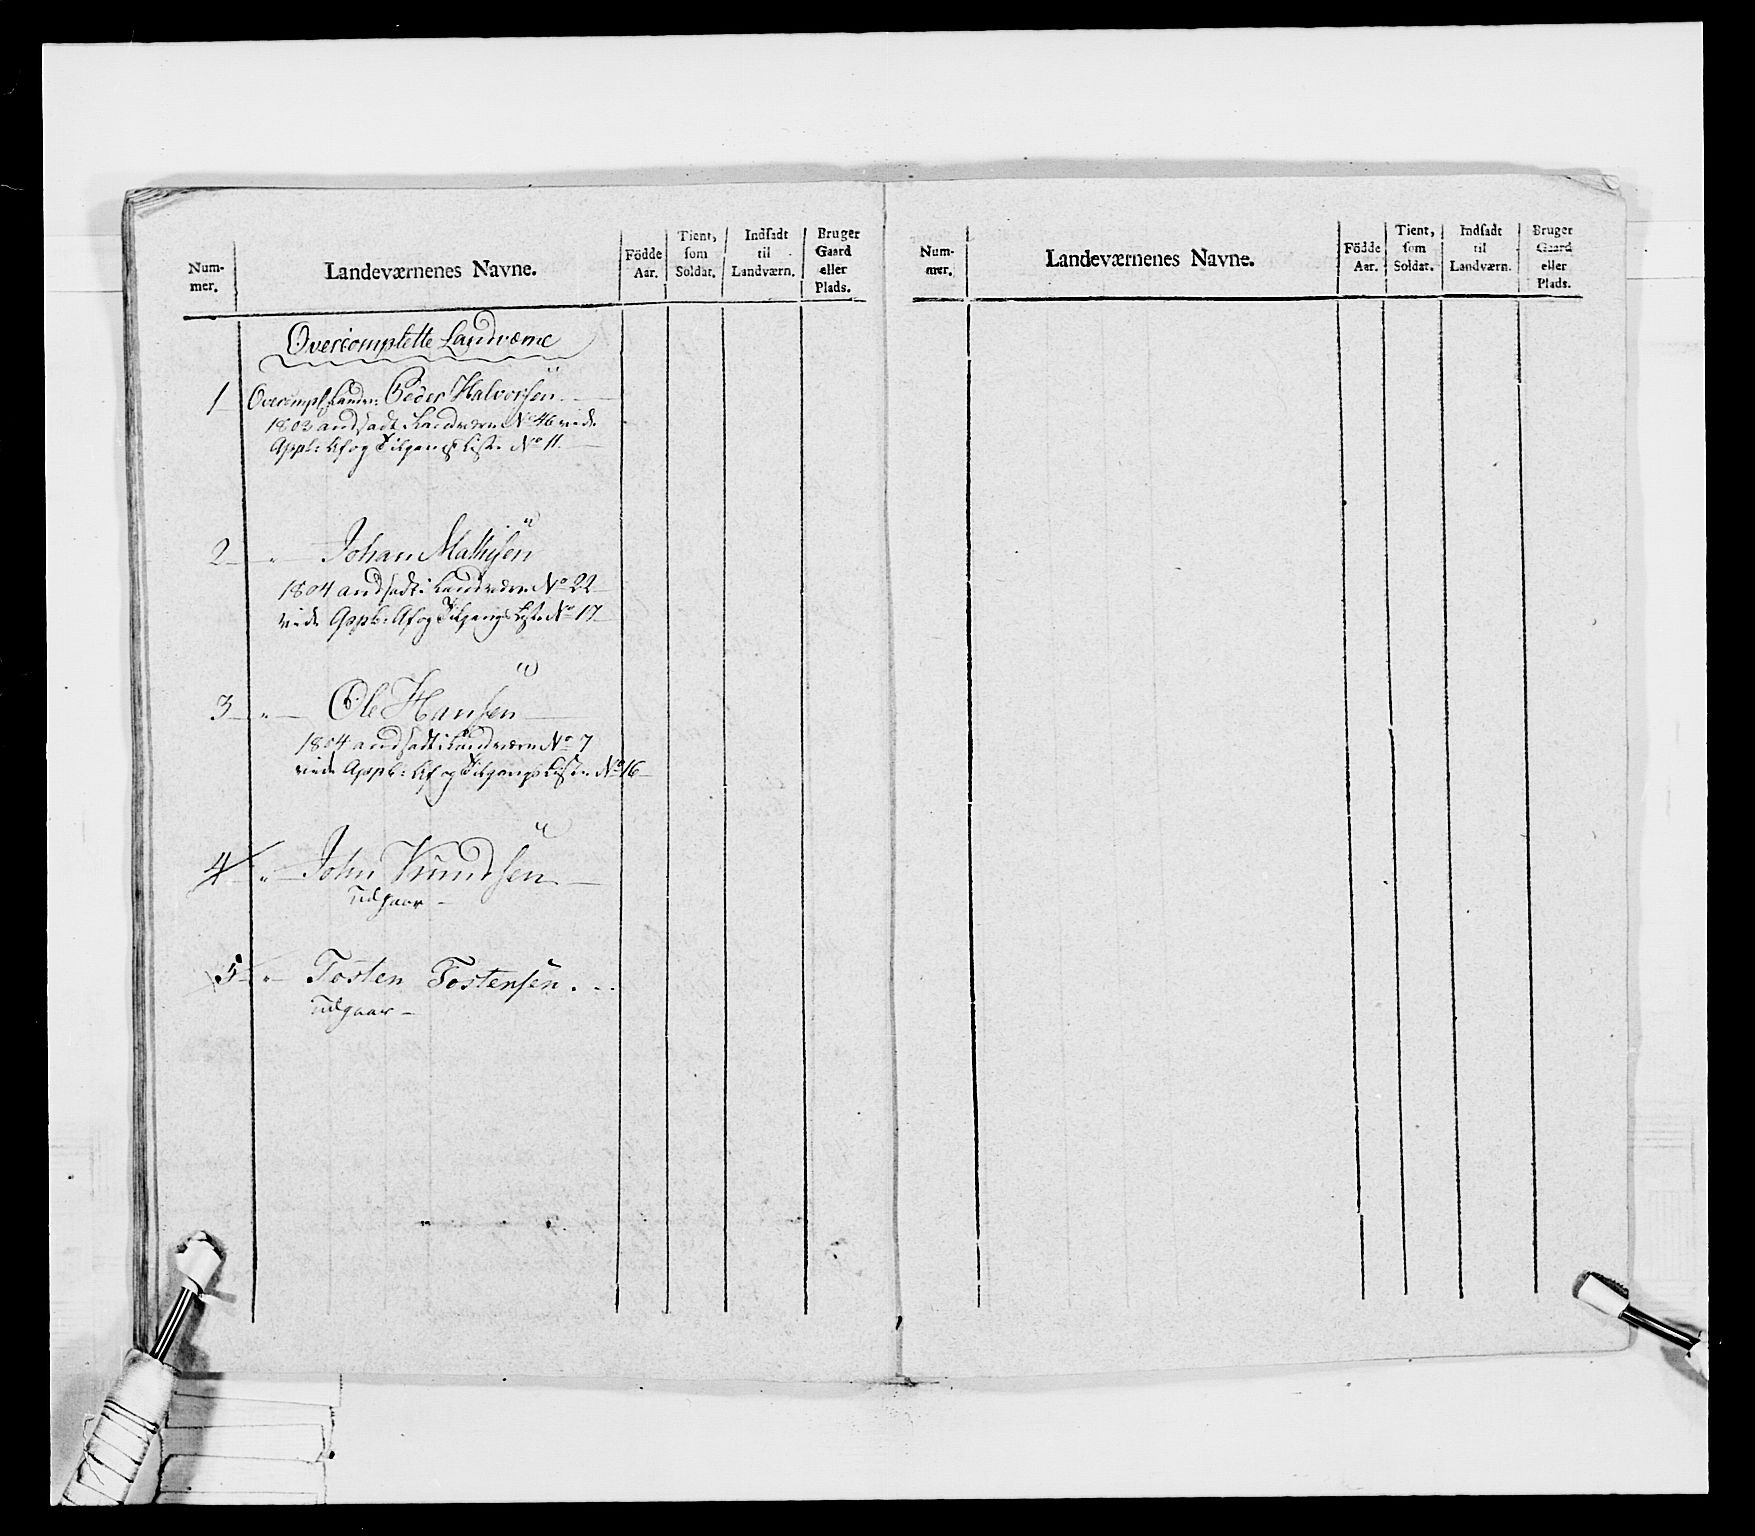 Num-
mer.
Landeværnenes Navne.
Födde
Aar.
Tient,
som
Soldat.
Indsadt
til
Landværn.
Bruger
Gaard
eller
Plads.
Overcomplette Landværne
1 Overcompl. Landv: Peder Halvorsen
1803 andsadt i Landværn No 46 vide
Appb: Af og Tilgangs Liste No 11.
2 " Johan Mathisen
1804 andsadt i Landværn No 22
vide Appb: Af og Tilgangs Liste No 17
3 " Ole Hansen
1804 andsadt i Landværn No 7
vide Appb: Af og Tilgangs Liste No 16
4 " John Knudsen
Udgaar
5 " Tosten Tostensen
Udgaar
Num-
mer.
Landeværnenes Navne.
Födde
Aar.
Tient,
som
Soldat.
Indsadt
til
Landværn.
Bruger
Gaard
eller
Plads.